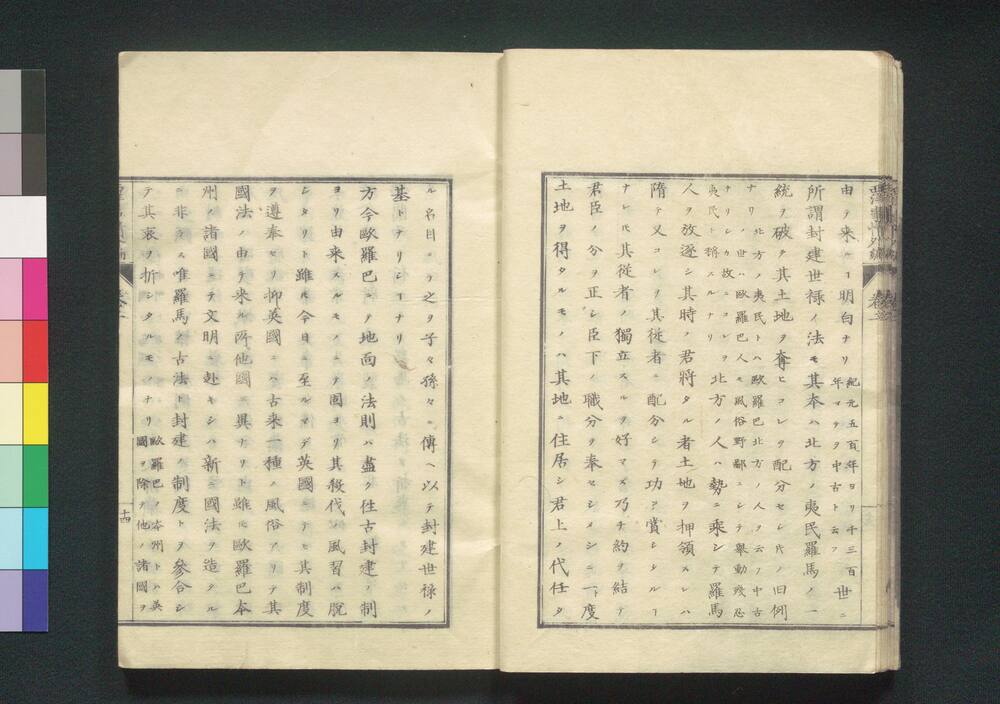 由テ来ルヿ明白ナリ 紀元五百年ヨリ千三百世ニ
年マテヲ中古ト云フ
所謂封建世禄ノ法モ其本ハ北方ノ夷民羅馬ノ一
統ヲ破テ其土地ヲ奪ヒコレヲ配分セシ片ノ旧例
ナリ 北方ノ夷民トハ歐羅巴北方ノ人ヲ云フ中古
ノ世ハ歐羅巴人モ風俗野鄙ニシテ舉動殘忍
ナリシカ故ニコレヲ
夷民ト稱スルナリ 北方ノ人ハ勢ニ乗シテ羅馬
人ヲ放逐シ其時ノ君將タル者土地ヲ押領スレハ
隋テ又コレヲ其従者ニ配分シテ功ヲ賞シタルヿ
ナレ𪜈其従者ノ獨立スルヲ好マス乃チ約ヲ結テ
君臣ノ分ヲ正シ臣下ノ職分ヲ奉セシメシニ一度
土地ヲ得タルモノハ其地ニ住居シ君上ノ代任タ
ル名目ニテ之ヲ子々孫々ニ傳ヘ以テ封建世禄ノ
基トナリシヿナリ
方今歐羅巴ニテ地面ノ法則ハ盡ク往古封建ノ制
ヨリ由来スルモノニテ固ヨリ其殺伐ノ風習ハ脱
シタリト雖𪜈今日ニ至ルマデ英國ニテモ其制度
ヲ遵奉セリ抑英國ニハ古来一種ノ風俗アリテ其
國法ノ由テ来ル所他國ニ異ナリト雖𪜈歐羅巴本
州ノ諸國ニテ文明ニ赴キシハ新ニ國法ヲ造タル
ニ非ラス唯羅馬ノ古法ト封建ノ制度トヲ參合シ
テ其衷ヲ折シタルモノナリ 歐羅巴ノ本州トハ英
國ヲ除テ他ノ諸國ヲ
十四